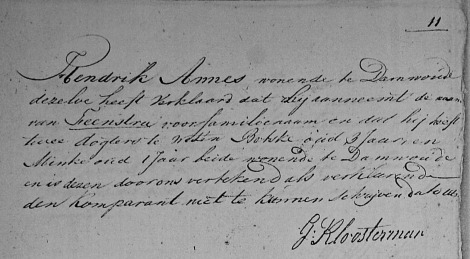 11
Hendrik Annes wonende te Damwoude
dezelve heeft verklaard dat hij aanneemt de naam
van Feenstra voor familienaam en dat hij heeft
twee dogters te weten Bokke oud 3 Jaar en
Menke oud 1 Jaar beide wonende te Damwoude
en is dezen door ons vertekend als verklarende
den komparant niet te kunnen schrijven dato uts
J: Kloosterman